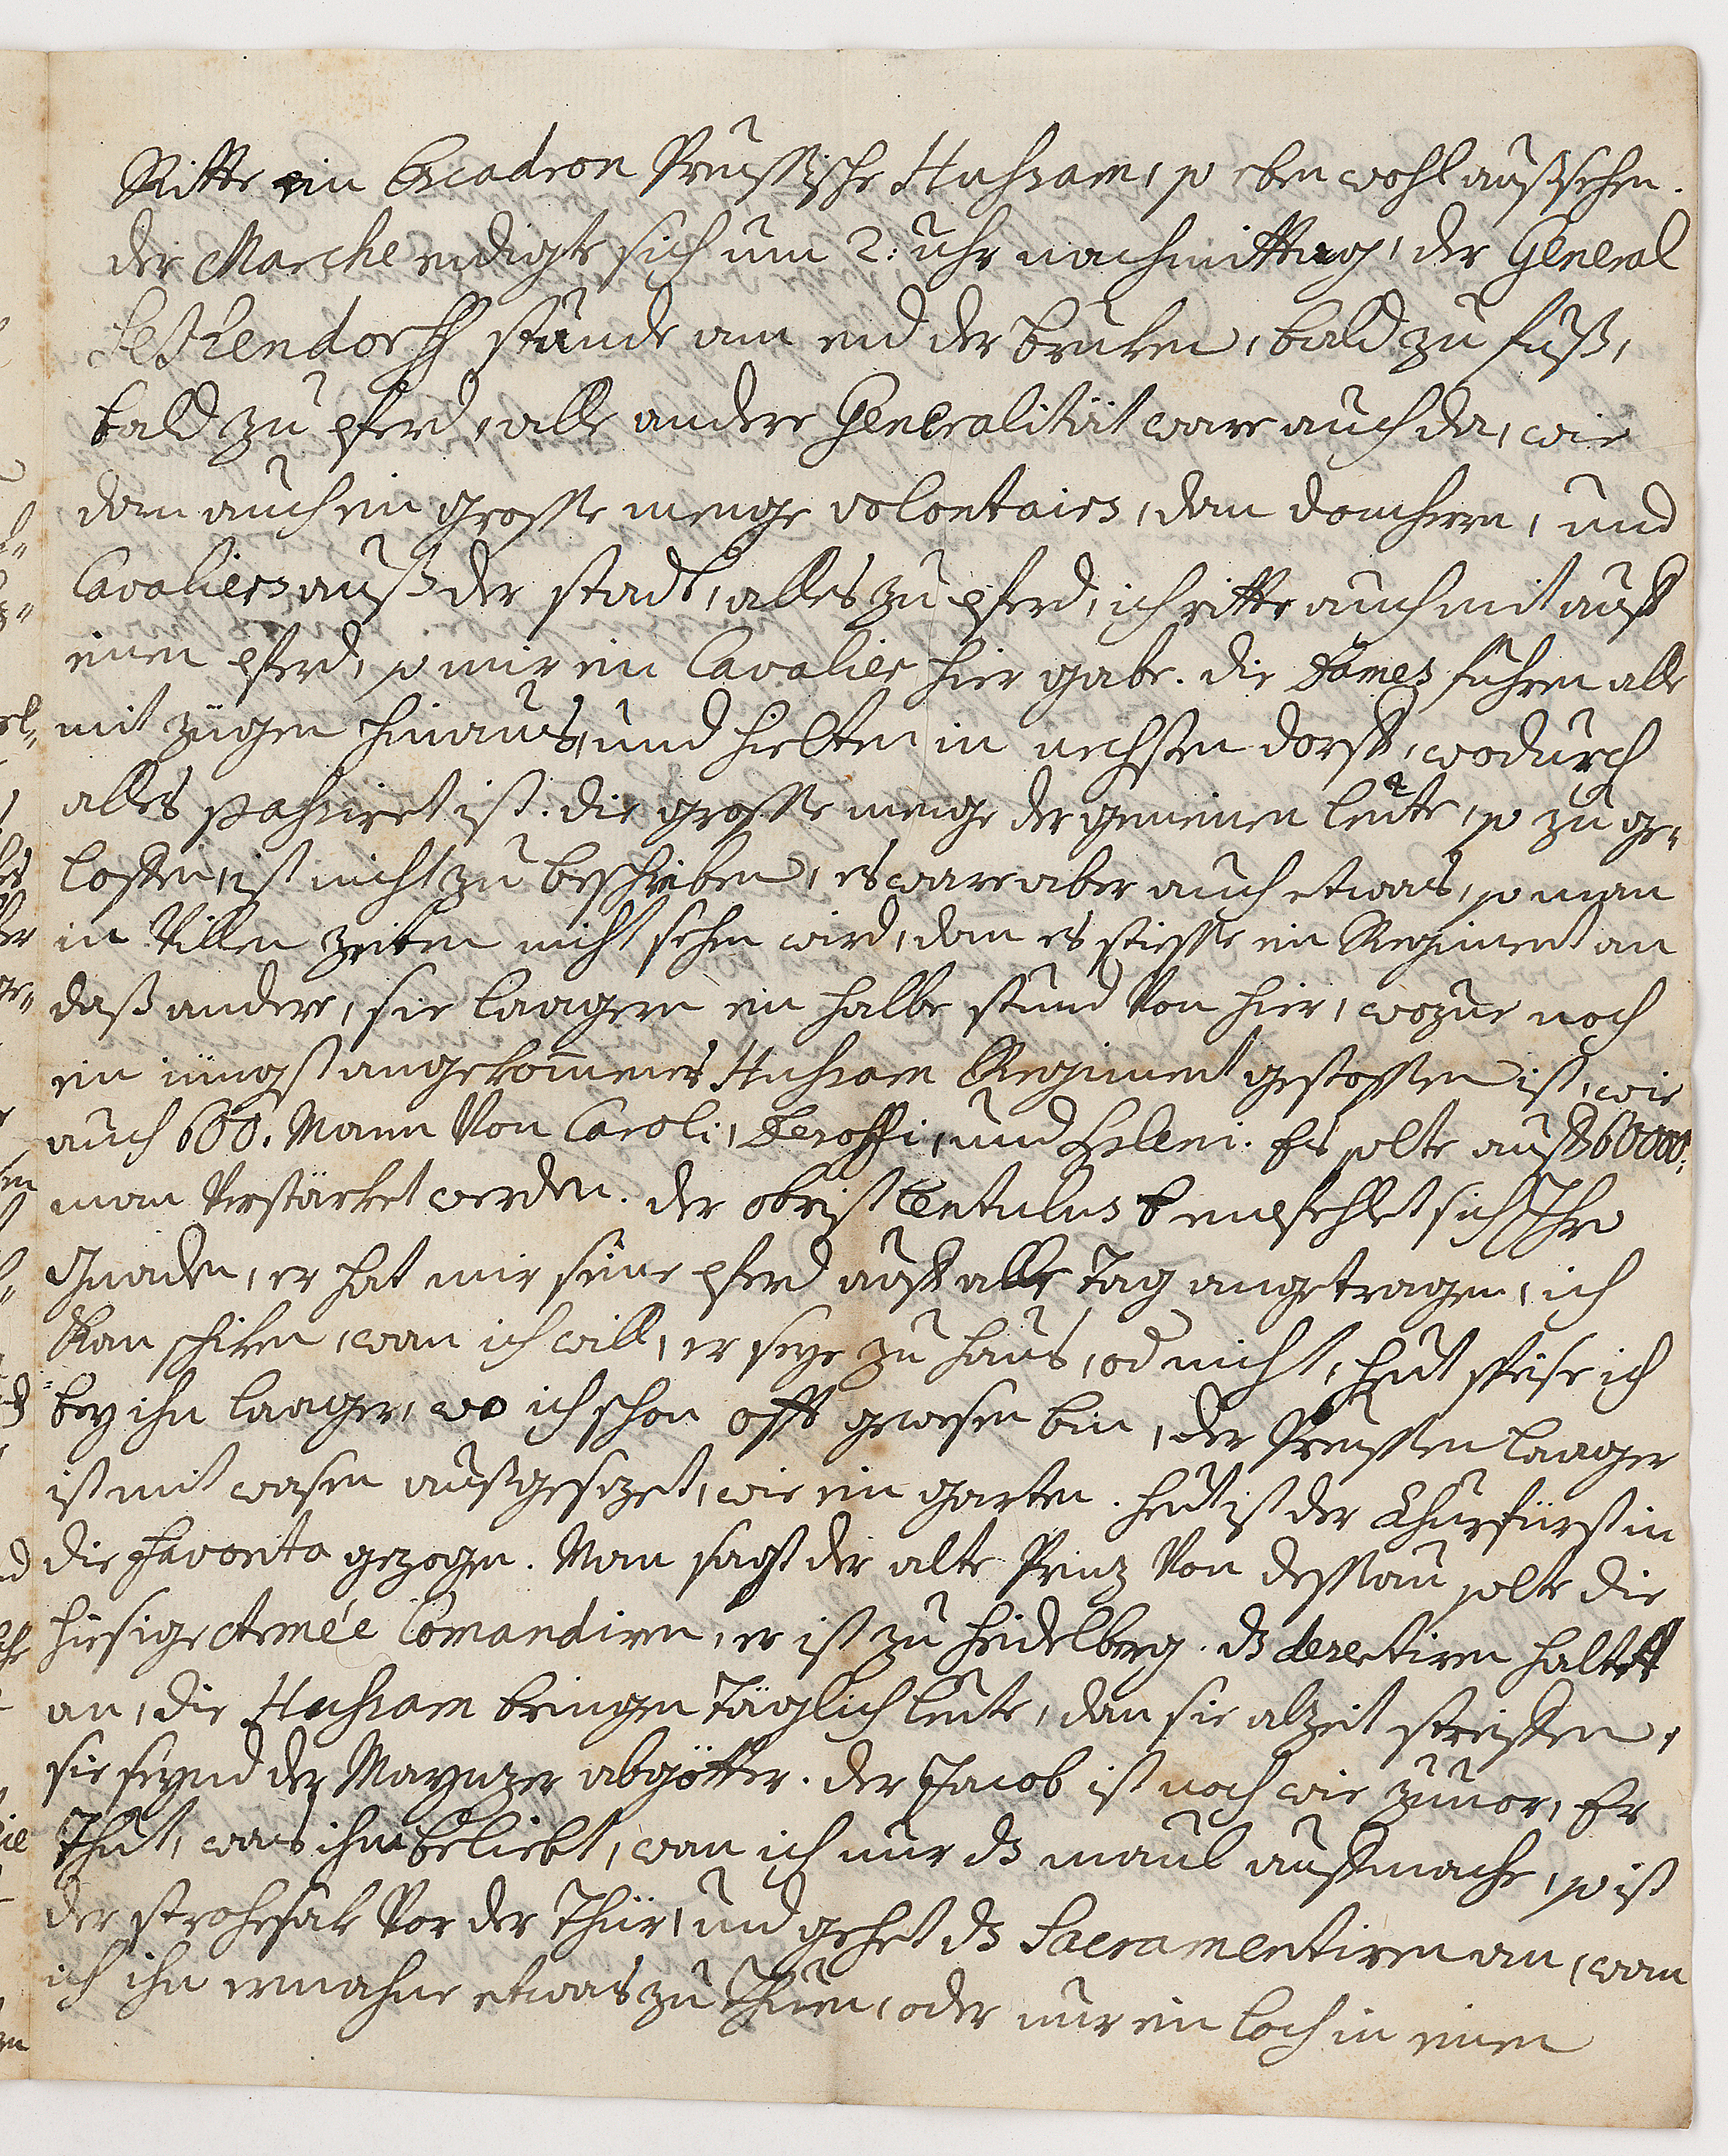 Ritte ein Escadron Preussische Huhsaren, so eben wohl außsehen.
der Marche endigte sich um 2: uhr nachmittag, der General
Seckendorff stunde am end der bruken, bald zu fuß,
bald zu pferd, alle andere Generalität ware auch da, wie
dan auch ein grosse menge volontairs, dan domherrn, und
Cavaliers auß der stadt, alles zu pferd, ich ritte auch mit auff
einen pferd, so mir ein Cavalier hier gabe. die Dames fuhren alle
mit zügen hinaus, und hielten in nechsten dorff, wodurch
alles pahsiret ist. die grosse menge der gemeinen leüte, so zu ge„
loffen, ist nicht zu beschreiben, es ware aber auch etwas, so man
in Villen zeiten nicht sehen wird, dan es stiesse ein Regiment an
daß andere, sie laagern ein halbe stund Von hier, wozue noch
ein jüngst angekommenes Huhsaren Regiment gestossen ist, wie
auch 600. Mann Von Caroli, und Es solte auff 60000:
man Verstärket werden. der obrist Lentulus empfehlet sich Ihro
Gnaden, er hat mir seine pferd auff alle Tag angetragen, ich
kan schiken, wan ich will, er seye zu haus, od nicht, heut speise ich
bey ihn laager, wo ich schon offt gewesen bin, der Preussen laager
ist mit wasen außgesezet, wie ein garten. heut ist der Churfürst in
die favorita gezogen. Man sagt der alte Prinz Von dessau solte die
hiesige Armée Comandiren, er ist zu heidelberg. dz desertiren haltet
an, die Huhsaren bringen täglich leute, dan sie alzeit streiffen,
sie seynd der Maynzer abgötter. der Jacob ist noch wie zuuor, Er
Thut, was ihm beliebt, wan ich nur dz maul auffmache, so ist
der strohesak Vor der Thür, und gehet dz Sacramentiren an, wan
ich ihn ermahne etwas zu Thuen, oder nur ein loch in einen